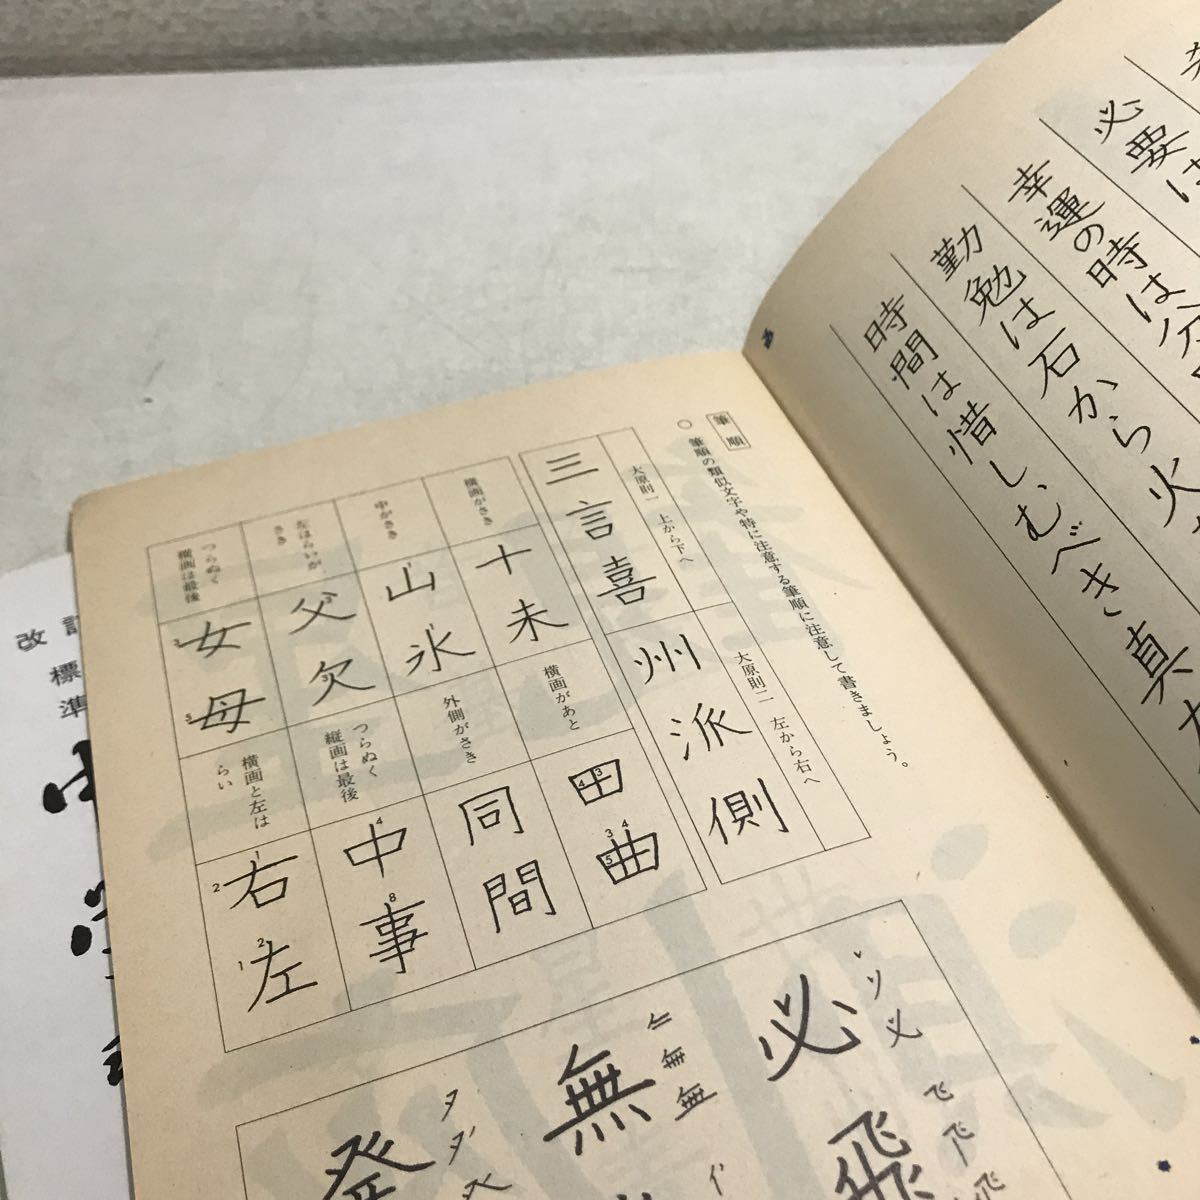 必要は
幸運の時は
勤勉は石から火
時間は惜しむべき真
筆順
○ 筆順の類似文字や特に注意する筆順に注意して書きましょう。
大原則一 上から下へ
三言喜
大原則二 左から右へ
州派側
横画がさき
十未
横画があと
田曲
3
4
3
4
5
中がさき
山氷
外側がさき
同間
左はらいが、さき
父欠
つらぬく縦画は最後
中事
4
8
つらぬく横画は最後
女母
3
5
横画と左はらい
右左
1
2
2
1
必飛
無
発
改訂
標準